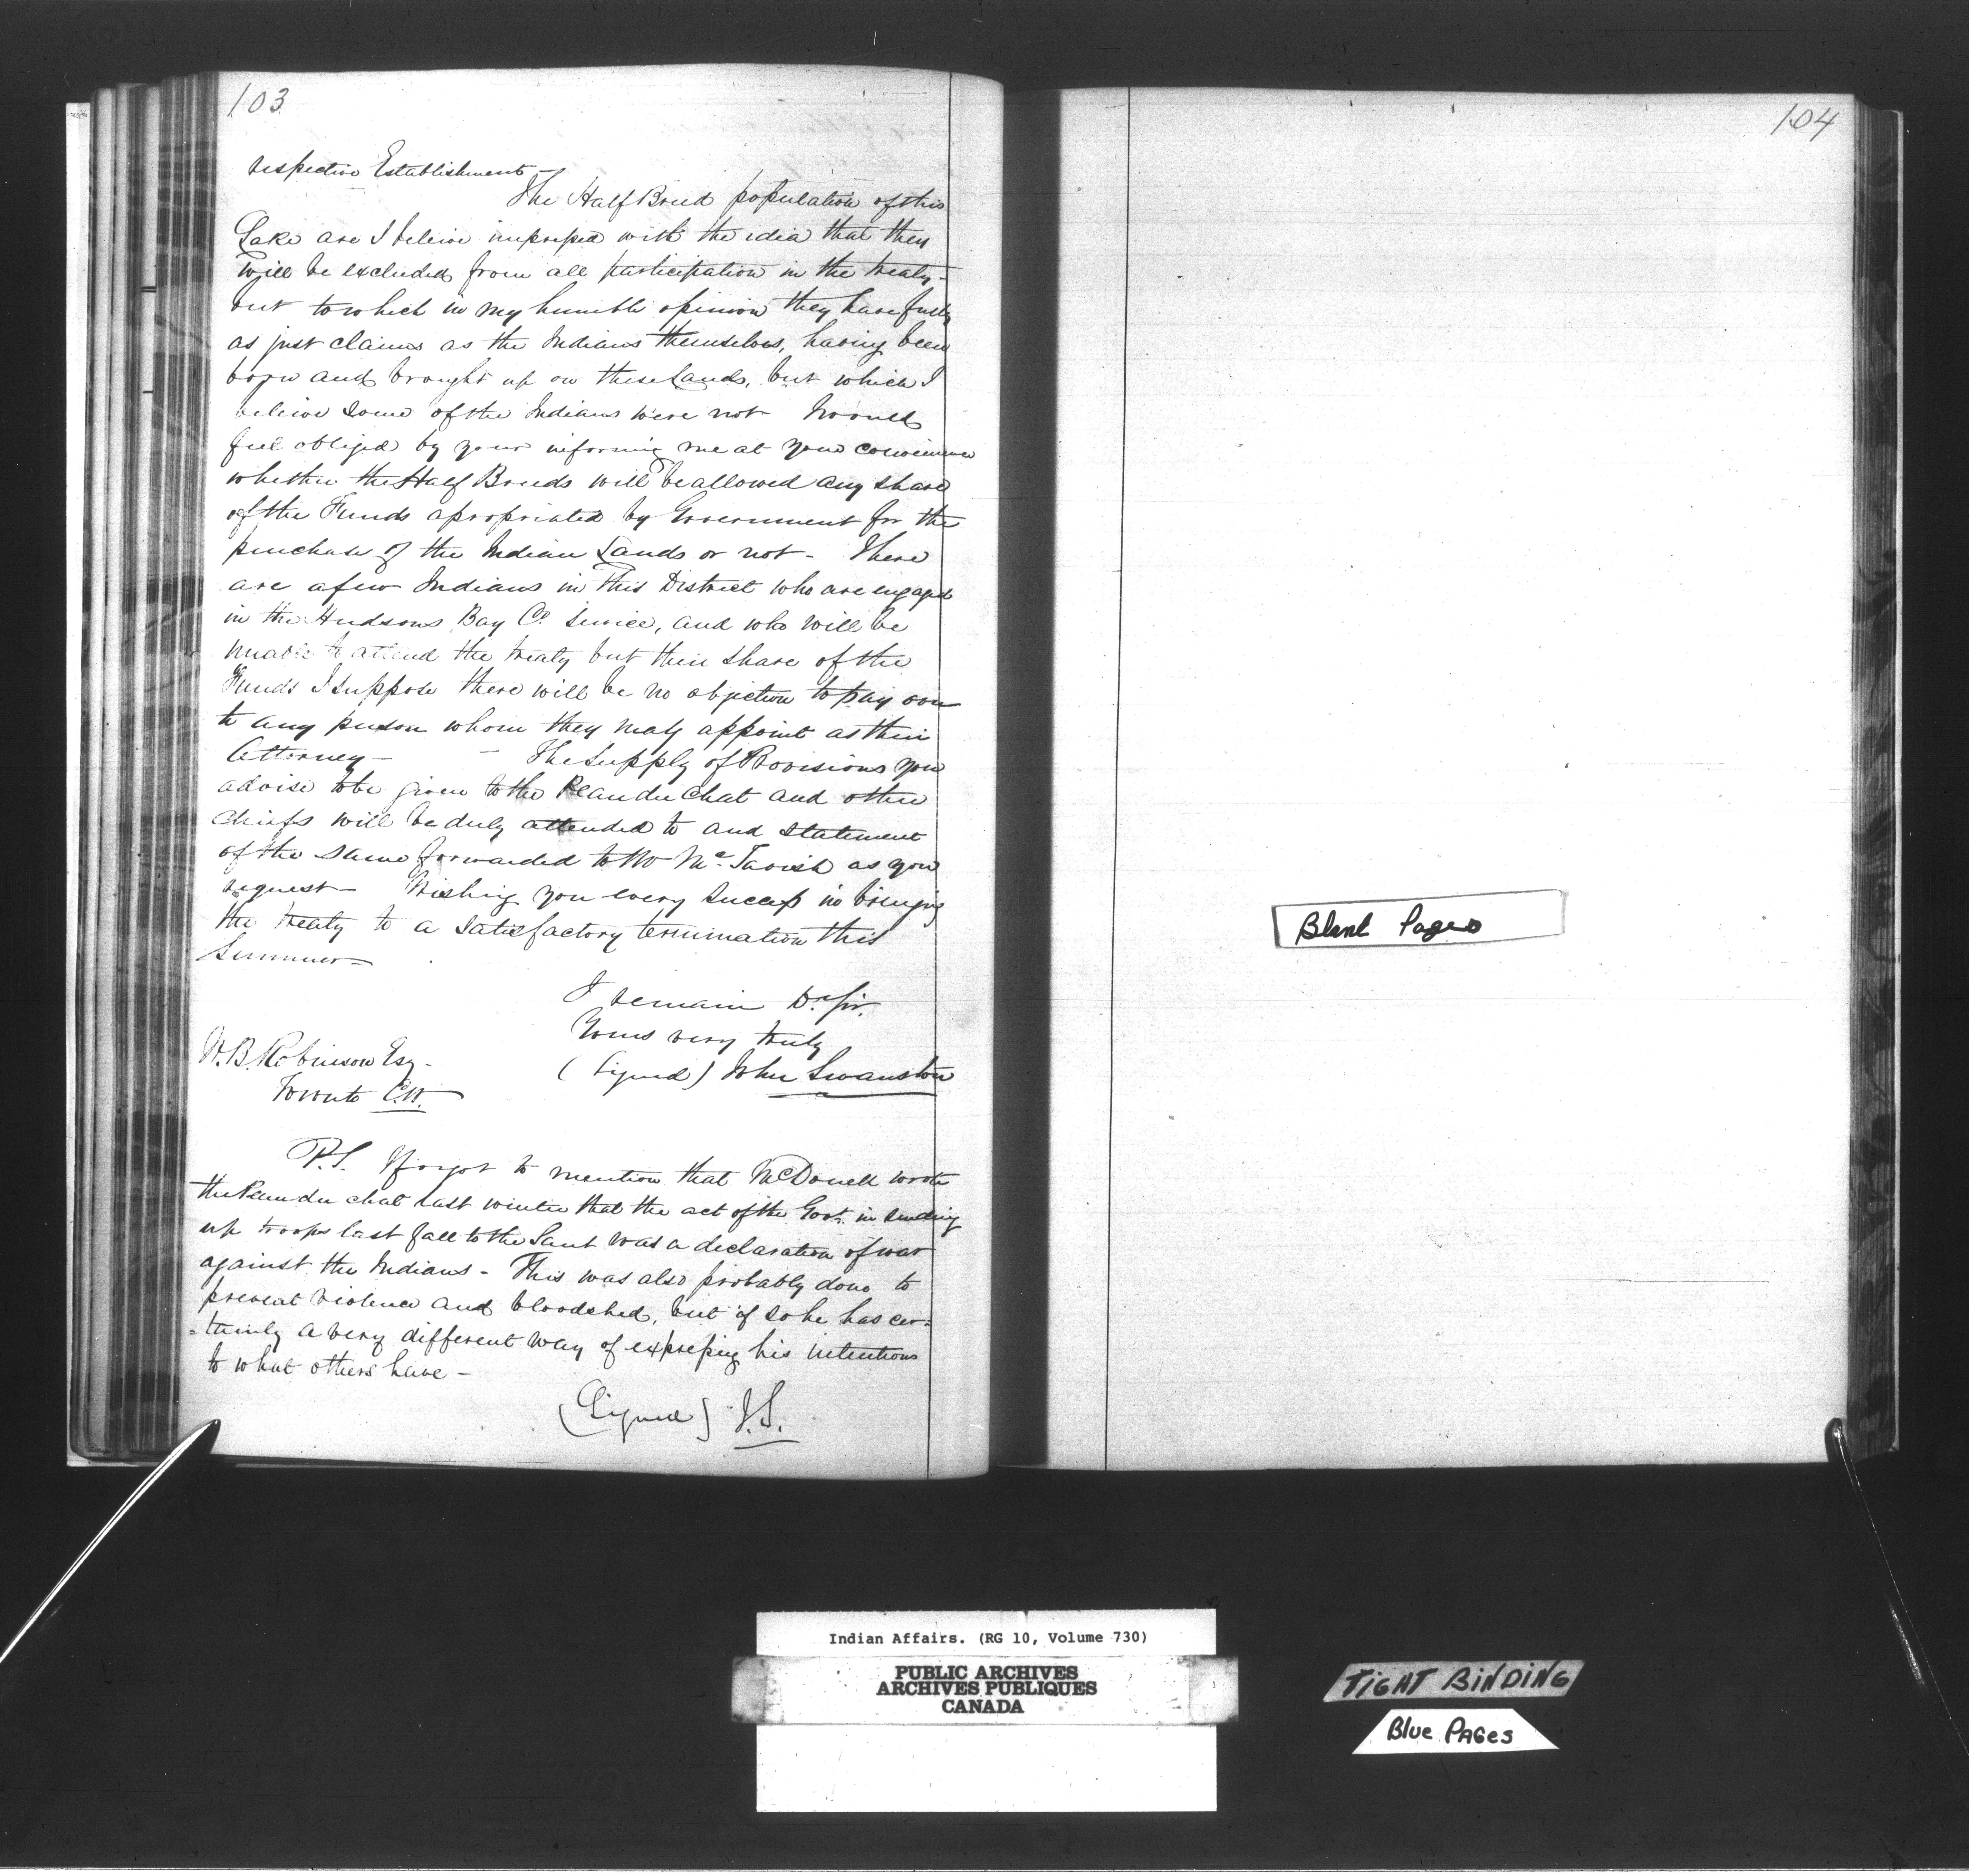 103
respective Establishment –
The Half Breed population of this
Lake are I beleive impressed with the idea that they
will be excluded from all participation in the treaty –
but to which in my humble opinion they have fully
as just claims as the Indians themselves, having been
born and brought up on these Lands, but which I
beleive some of the Indians were not Would
feel obliged by your informing me at your convenience
whether the Half Breeds will be allowed any share
of the Funds apropriated by Government for the
purchase of the Indian Lands or not – There
are a few Indians in this District who are engaged
in the Hudsons Bay Co. Service, and who will be
unable to attend the treaty but their share of the
Funds I suppose there will be no objection to pay over
to any person whom they may appoint as their
Attorney – – The Supply of Provisions you
advise to be given to the Peau du Chat and other
Chiefs will be duly attended to and statement
of the same forwarded to Mr McTavish as you
request – Wishing you every success in bringing
the treaty to a satisfactory termination this
Summer –
I remain Dr Sir.
Yours very truly
(Signed) John Swanston
W.B. Robinson Esq.
Toronto C.W.
P.S. I forgot to mention that McDonell wrote
the Peau du chat last winter that the act of the Govt. in sending
up troops last fall to the Saut was a declaration of war
against the Indians – This was also probably done to
prevent violence and bloodshed, but if so he has cer=
=tainly a very different way of expressing his intentions
to what others have –
(Signed) J.S.
104
Blank Pages
Indian Affairs. (RG 10, Volume 730)
PUBLIC ARCHIVES
ARCHIVES PUBLIQUES
CANADA
TIGHT BINDING
Blue PAGes